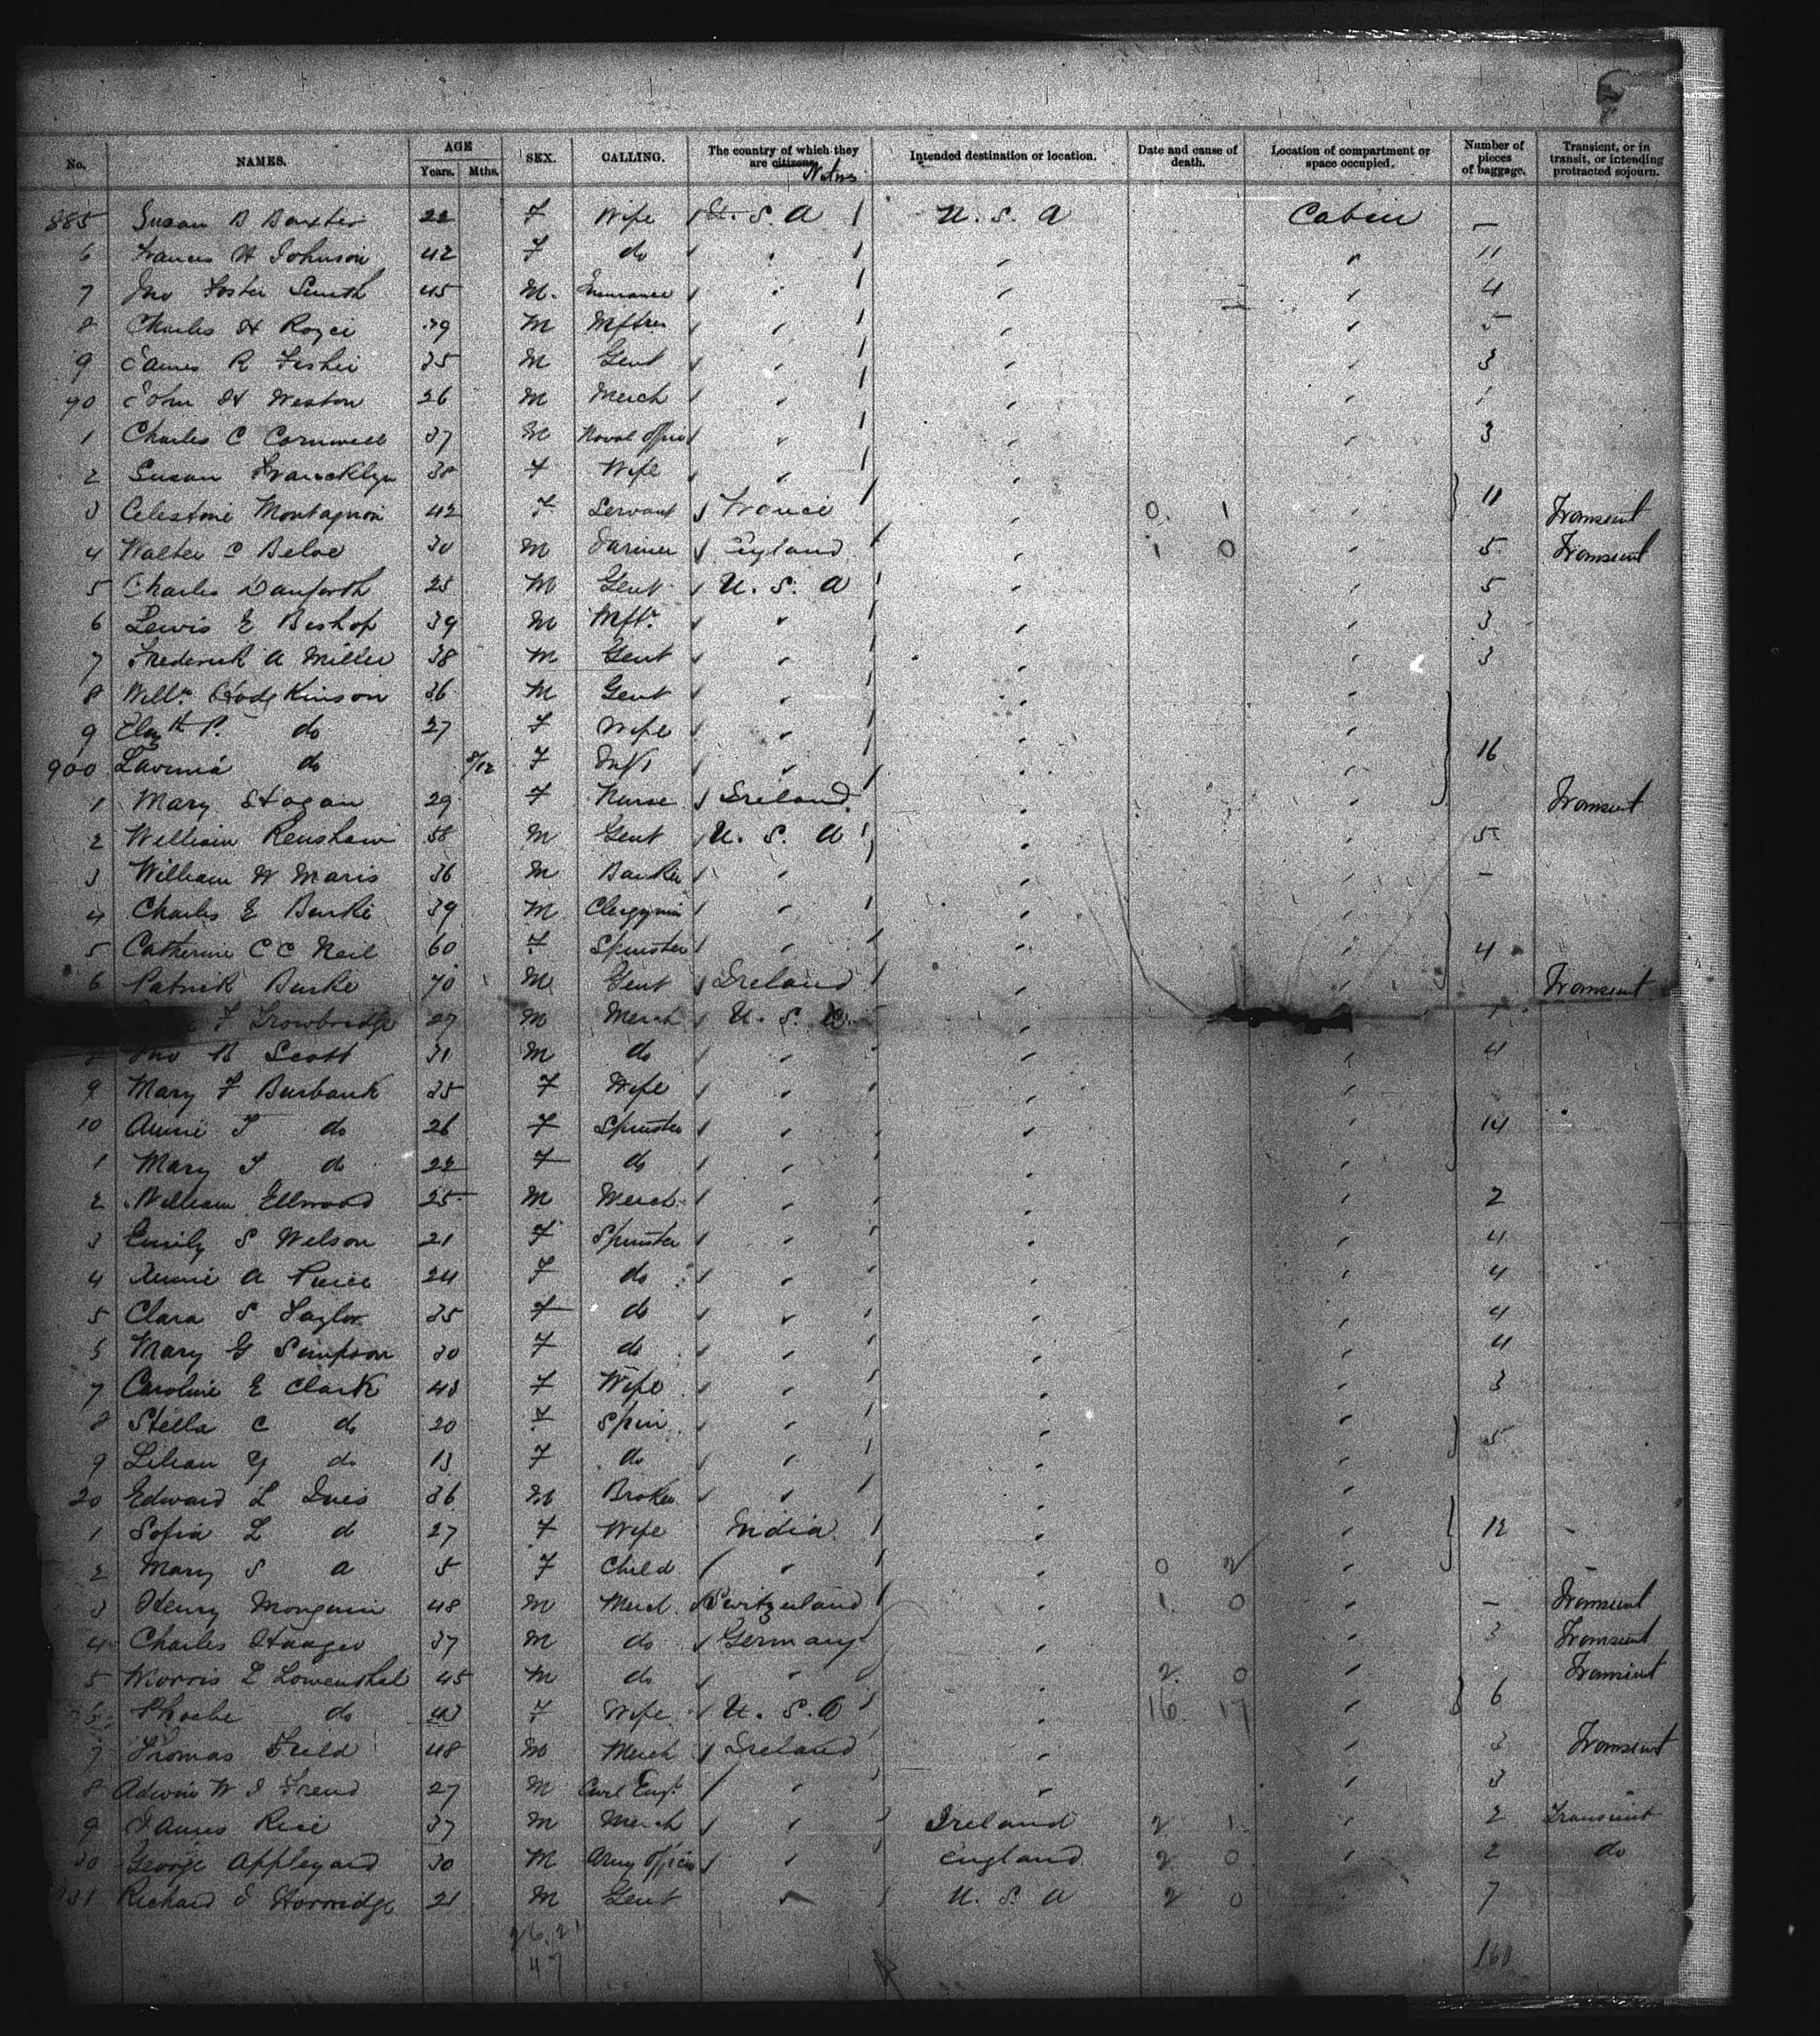 No. NAMES. AGE Years. Mths. SEX. CALLING. The country of which they are citizens Natives Intended destination or location. Date and cause of death. Location of compartment or space occupied. Number of pieces of baggage. Transient, or in transit, or intending protracted sojourn.
885 Susan B Baxter 22 F Wife U. S. A U. S. A Cabin —
6 Frances H Johnson 42 F do " " " 11
7 Jno Foster Smith 45 M. Insurance " " " 4
8 Charles H 39 M " " " 5
9 James R 35 M Gent " " " 3
90 John H Weston 26 M Merch " " " 1
1 Charles C Cornwell 37 M Naval Offcr " " " 3
2 Susan Francklyn 38 F Wife " " "
3 Celestine Montagnon 42 F Servant France " 0 1 " 11 Transient
4 Walter C Beloe 30 M Farmer England " 1 0 " 5 Transient
5 Charles Danforth 25 M Gent U. S. A " " 5
6 Lewis E Bishop 39 M Mftr. " " " 3
7 Frederick A Miller 38 M Gent " " " 3
8 Willm. Hodgkinson 36 M Gent " " "
9 Elazth P. do 27 F Wife " " "
900 Lavinia do 8/12 F Inft " " " 16
1 Mary Hogan 29 F Nurse Ireland " " Transient
2 William Renshaw 58 M Gent U. S. A " " 5
3 William W Maris 36 M Banker " " " —
4 Charles E Burke 39 M Clergymn " " "
5 Catherine C C Neil 60 F Spinster " " " 4
6 Patrick Burke 70 M Gent Ireland " " Transient
F Trowbridge 27 M Merch U. S. A " " 1
8 Jno B Scott 31 M do " " " 4
9 Mary F Burbank 35 F Wife " " "
10 Annie T do 26 F Spinster " " " 14
1 Mary T do 22 F do " " "
2 William Ellwood 25 M Merch " " " 2
3 Emily S Welson 21 F Spinster " " " 4
4 Annie A Price 24 F do " " " 4
5 Clara S Taylor 35 F do " " " 4
5 Mary G Simpson 30 F do " " " 4
7 Caroline E Clark 43 F Wife " " " 3
8 Stella C do 20 F Spin " " "
9 Lilian G do 13 F do " " " 5
20 Edward L Ives 36 M Broker " " "
1 Sofia L d 27 F Wife India " " 12
2 Mary S d 5 F Child " " 0 2 "
3 Henry Monguin 48 M Merch Switzerland " 1 0 " — Transient
4 Charles Haager 37 M do Germany " " 3 Transient
5 Morris L Lowenthal 45 M do " " 2 0 " Transient
6 Phoebe do 43 F Wife U. S. A " 16 17 " 6
7 Thomas Field 48 M Merch Ireland " " 3 Transient
8 Edwin W J Freud 27 M Civil Engr " " " 3
9 James Rice 37 M Merch " Ireland 2 1 " 2 Transient
30 George Appleyard 30 M Army Officer " England 2 0 " 2 do
931 Richard J Horridge 21 M Gent " U. S. A 2 0 " 7
26. 21
47 161